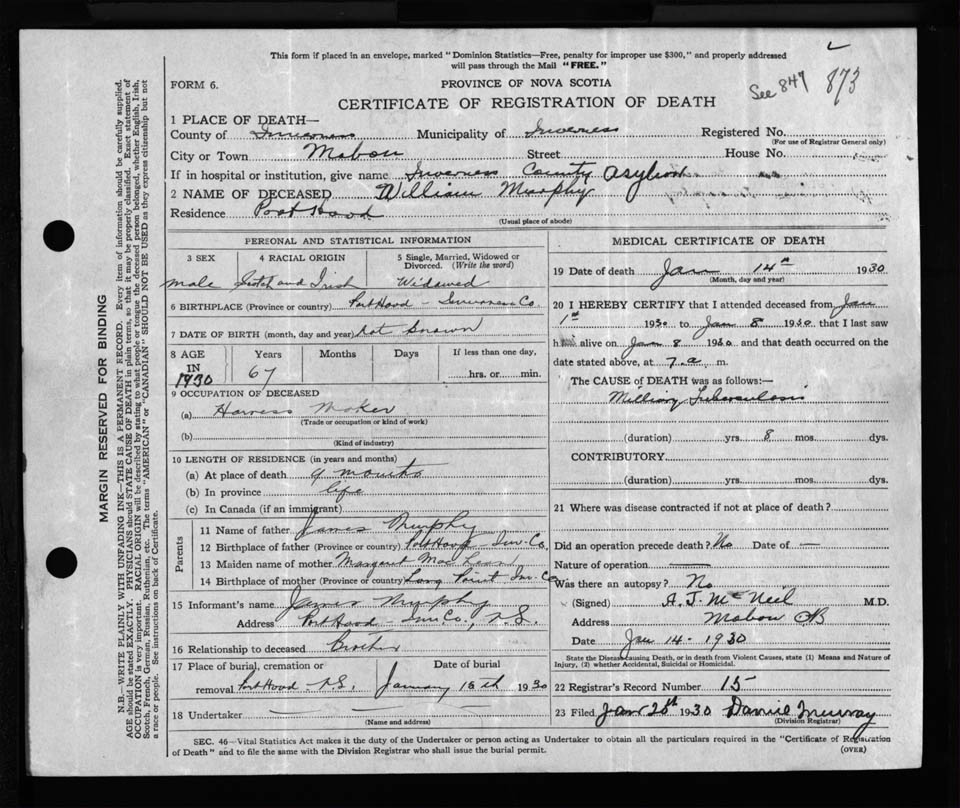 This form if placed in an envelope, marked "Dominion Statistics—Free, penalty for improper use $300," and properly addressed
will pass through the Mail "FREE."
FORM 6.
PROVINCE OF NOVA SCOTIA
See 847 873
CERTIFICATE OF REGISTRATION OF DEATH
1 PLACE OF DEATH—
County of Inverness Municipality of Inverness Registered No.
(For use of Registrar General only)
City or Town Mabou Street House No.
If in hospital or institution, give name Inverness County Asylum
2 NAME OF DECEASED William Murphy
Residence Port Hood
(Usual place of abode)
PERSONAL AND STATISTICAL INFORMATION
3 SEX 4 RACIAL ORIGIN 5 Single, Married, Widowed or Divorced. (Write the word)
male Scotch and Irish Widowed
6 BIRTHPLACE (Province or country) Port Hood - Inverness Co.
7 DATE OF BIRTH (month, day and year) Not Known
8 AGE IN 1930 Years Months Days If less than one day,
67 hrs. or min.
9 OCCUPATION OF DECEASED
(a) Harness Maker
(Trade or occupation or kind of work)
(b)
(Kind of industry)
10 LENGTH OF RESIDENCE (in years and months)
(a) At place of death 9 months
(b) In province life
(c) In Canada (if an immigrant)
Parents
11 Name of father James Murphy
12 Birthplace of father (Province or country) Port Hood - Inv. Co.
13 Maiden name of mother Margaret
14 Birthplace of mother (Province or country) Long Point Inv. Co
15 Informant's name James Murphy
Address Port Hood - Inv Co., N.S.
16 Relationship to deceased Brother
17 Place of burial, cremation or Date of burial
removal Port Hood - N.S. January 16th 1930
18 Undertaker
(Name and address)
MEDICAL CERTIFICATE OF DEATH
19 Date of death Jan 14th 1930
(Month, day and year)
20 I HEREBY CERTIFY that I attended deceased from Jan
1st 1930 to Jan 8 1930 that I last saw
h alive on Jan 8 1930 and that death occurred on the
date stated above, at 7 a. m.
The CAUSE OF DEATH was as follows:—
Milliary Tuberculosis
(duration) yrs. 8 mos. dys.
CONTRIBUTORY
(duration) yrs. mos. dys.
21 Where was disease contracted if not at place of death?
Did an operation precede death? No Date of —
Nature of operation —
Was there an autopsy? No
(Signed) A. J. McNeil M.D.
Address Mabou CB
Date Jan 14 - 1930
State the Disease causing Death, or in death from Violent Causes, state (1) Means and Nature of
Injury, (2) whether Accidental, Suicidal or Homicidal.
22 Registrar's Record Number 15
23 Filed Jan 28th 1930 Dannie Murray
(Division Registrar)
SEC. 46—Vital Statistics Act makes it the duty of the Undertaker or person acting as Undertaker to obtain all the particulars required in the "Certificate of Registration
of Death" and to file the same with the Division Registrar who shall issue the burial permit.
(OVER)
MARGIN RESERVED FOR BINDING
N.B.—WRITE PLAINLY WITH UNFADING INK—THIS IS A PERMANENT RECORD. Every item of information should be carefully supplied.
AGE should be stated EXACTLY. PHYSICIANS should STATE CAUSE OF DEATH in plain terms, so that it may be properly classified. Exact statement of
OCCUPATION is very important. RACIAL ORIGIN will be described by stating to what people or tongue the deceased person belonged, whether English, Irish,
Scotch, French, German, Russian, Ruthenian, etc. The terms "AMERICAN" or "CANADIAN" SHOULD NOT BE USED as they express citizenship but not
a race or people. See instructions on back of Certificate.